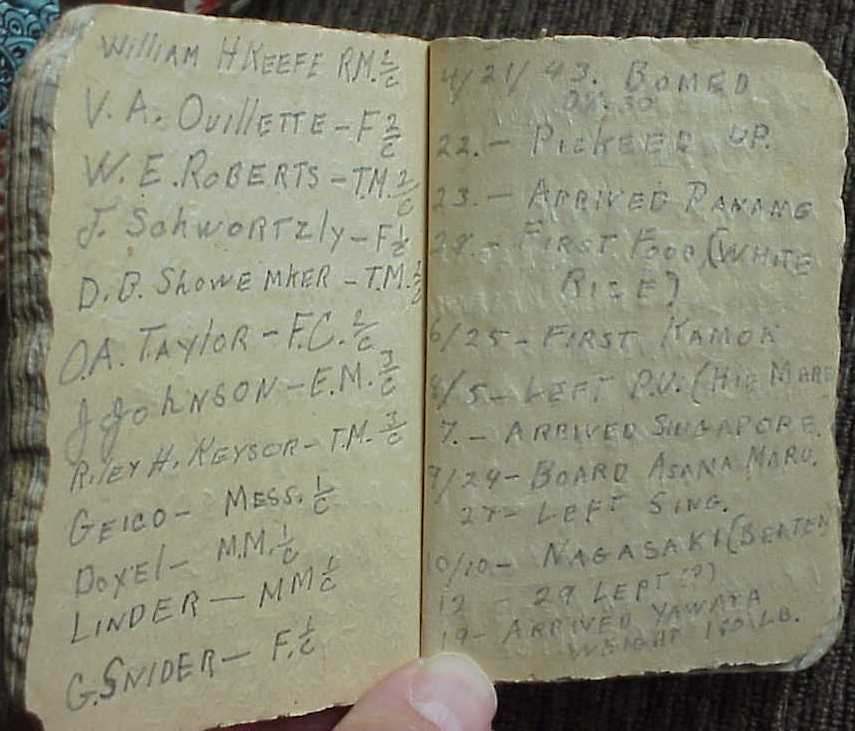 William H Keefe R.M. 2/c
V. A. Ouillette – F 2/c
W. E. Roberts – T.M. 2/c
J. Schwortzly – F 1/c
D. B. Showemker – T.M.
O.A. Taylor – F.C. 2/c
J Johnson – E.M. 3/c
Riley H. Keysor – T.M. 3/c
Geico – Mess. 1/c
Doxel – M.M. 1/c
Linder – MM 1/c
G. Snider – F. 1/c
4/21/43. Bomed
08:30
22. – Pickeed up.
23. – Arrived Panang
28. – First Food, (White
Rice)
6/25 – First Kamok
8/5 – Left P.U. (Hie Mare
7. – Arrived Singapore.
9/24 – Board Asama Maru.
27 – Left Sing.
10/10 – Nagasaki (Beaten
12 – 29 Left (?)
19 – Arrived Yawata
Weight 120 lb.